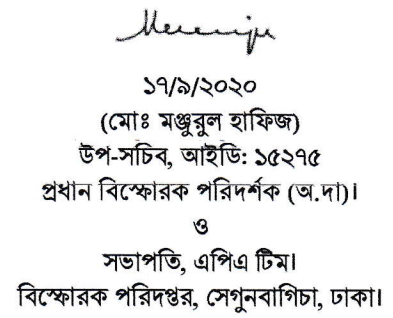 ১৭/৯/২০২০
(মোঃ মঞ্জুরুল হাফিজ)
উপ-সচিব, আইডি: ১৫২৭৫
প্রধান বিস্ফোরক পরিদর্শক (অ.দা)।
ও
সভাপতি, এপিএ টিম।
বিস্ফোরক পরিদপ্তর, সেগুনবাগিচা, ঢাকা।